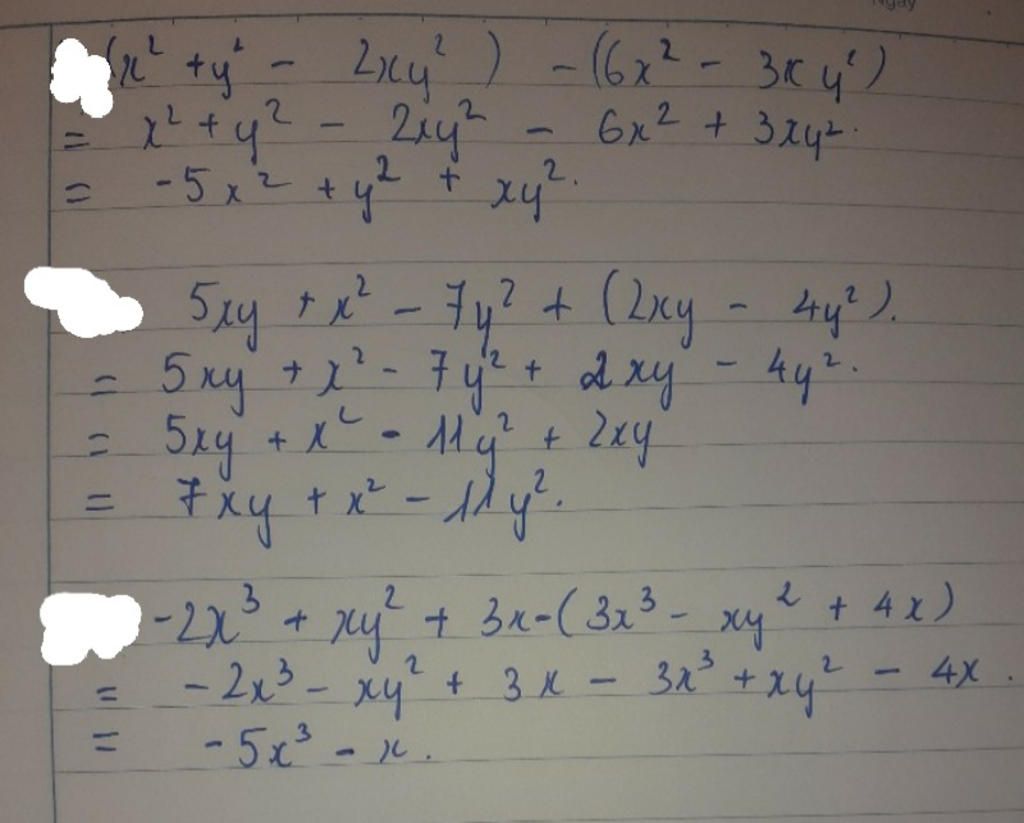 (x² + y² - 2xy²) - (6x² - 3xy²)
= x² + y² - 2xy² - 6x² + 3xy².
= -5x² + y² + xy².
5xy + x² - 7y² + (2xy - 4y²).
= 5xy + x² - 7y² + 2xy - 4y².
= 5xy + x² - 11y² + 2xy
= 7xy + x² - 11y².
-2x³ + xy² + 3x - (3x³ - xy² + 4x)
= -2x³ - xy² + 3x - 3x³ + xy² - 4x.
= -5x³ - x.